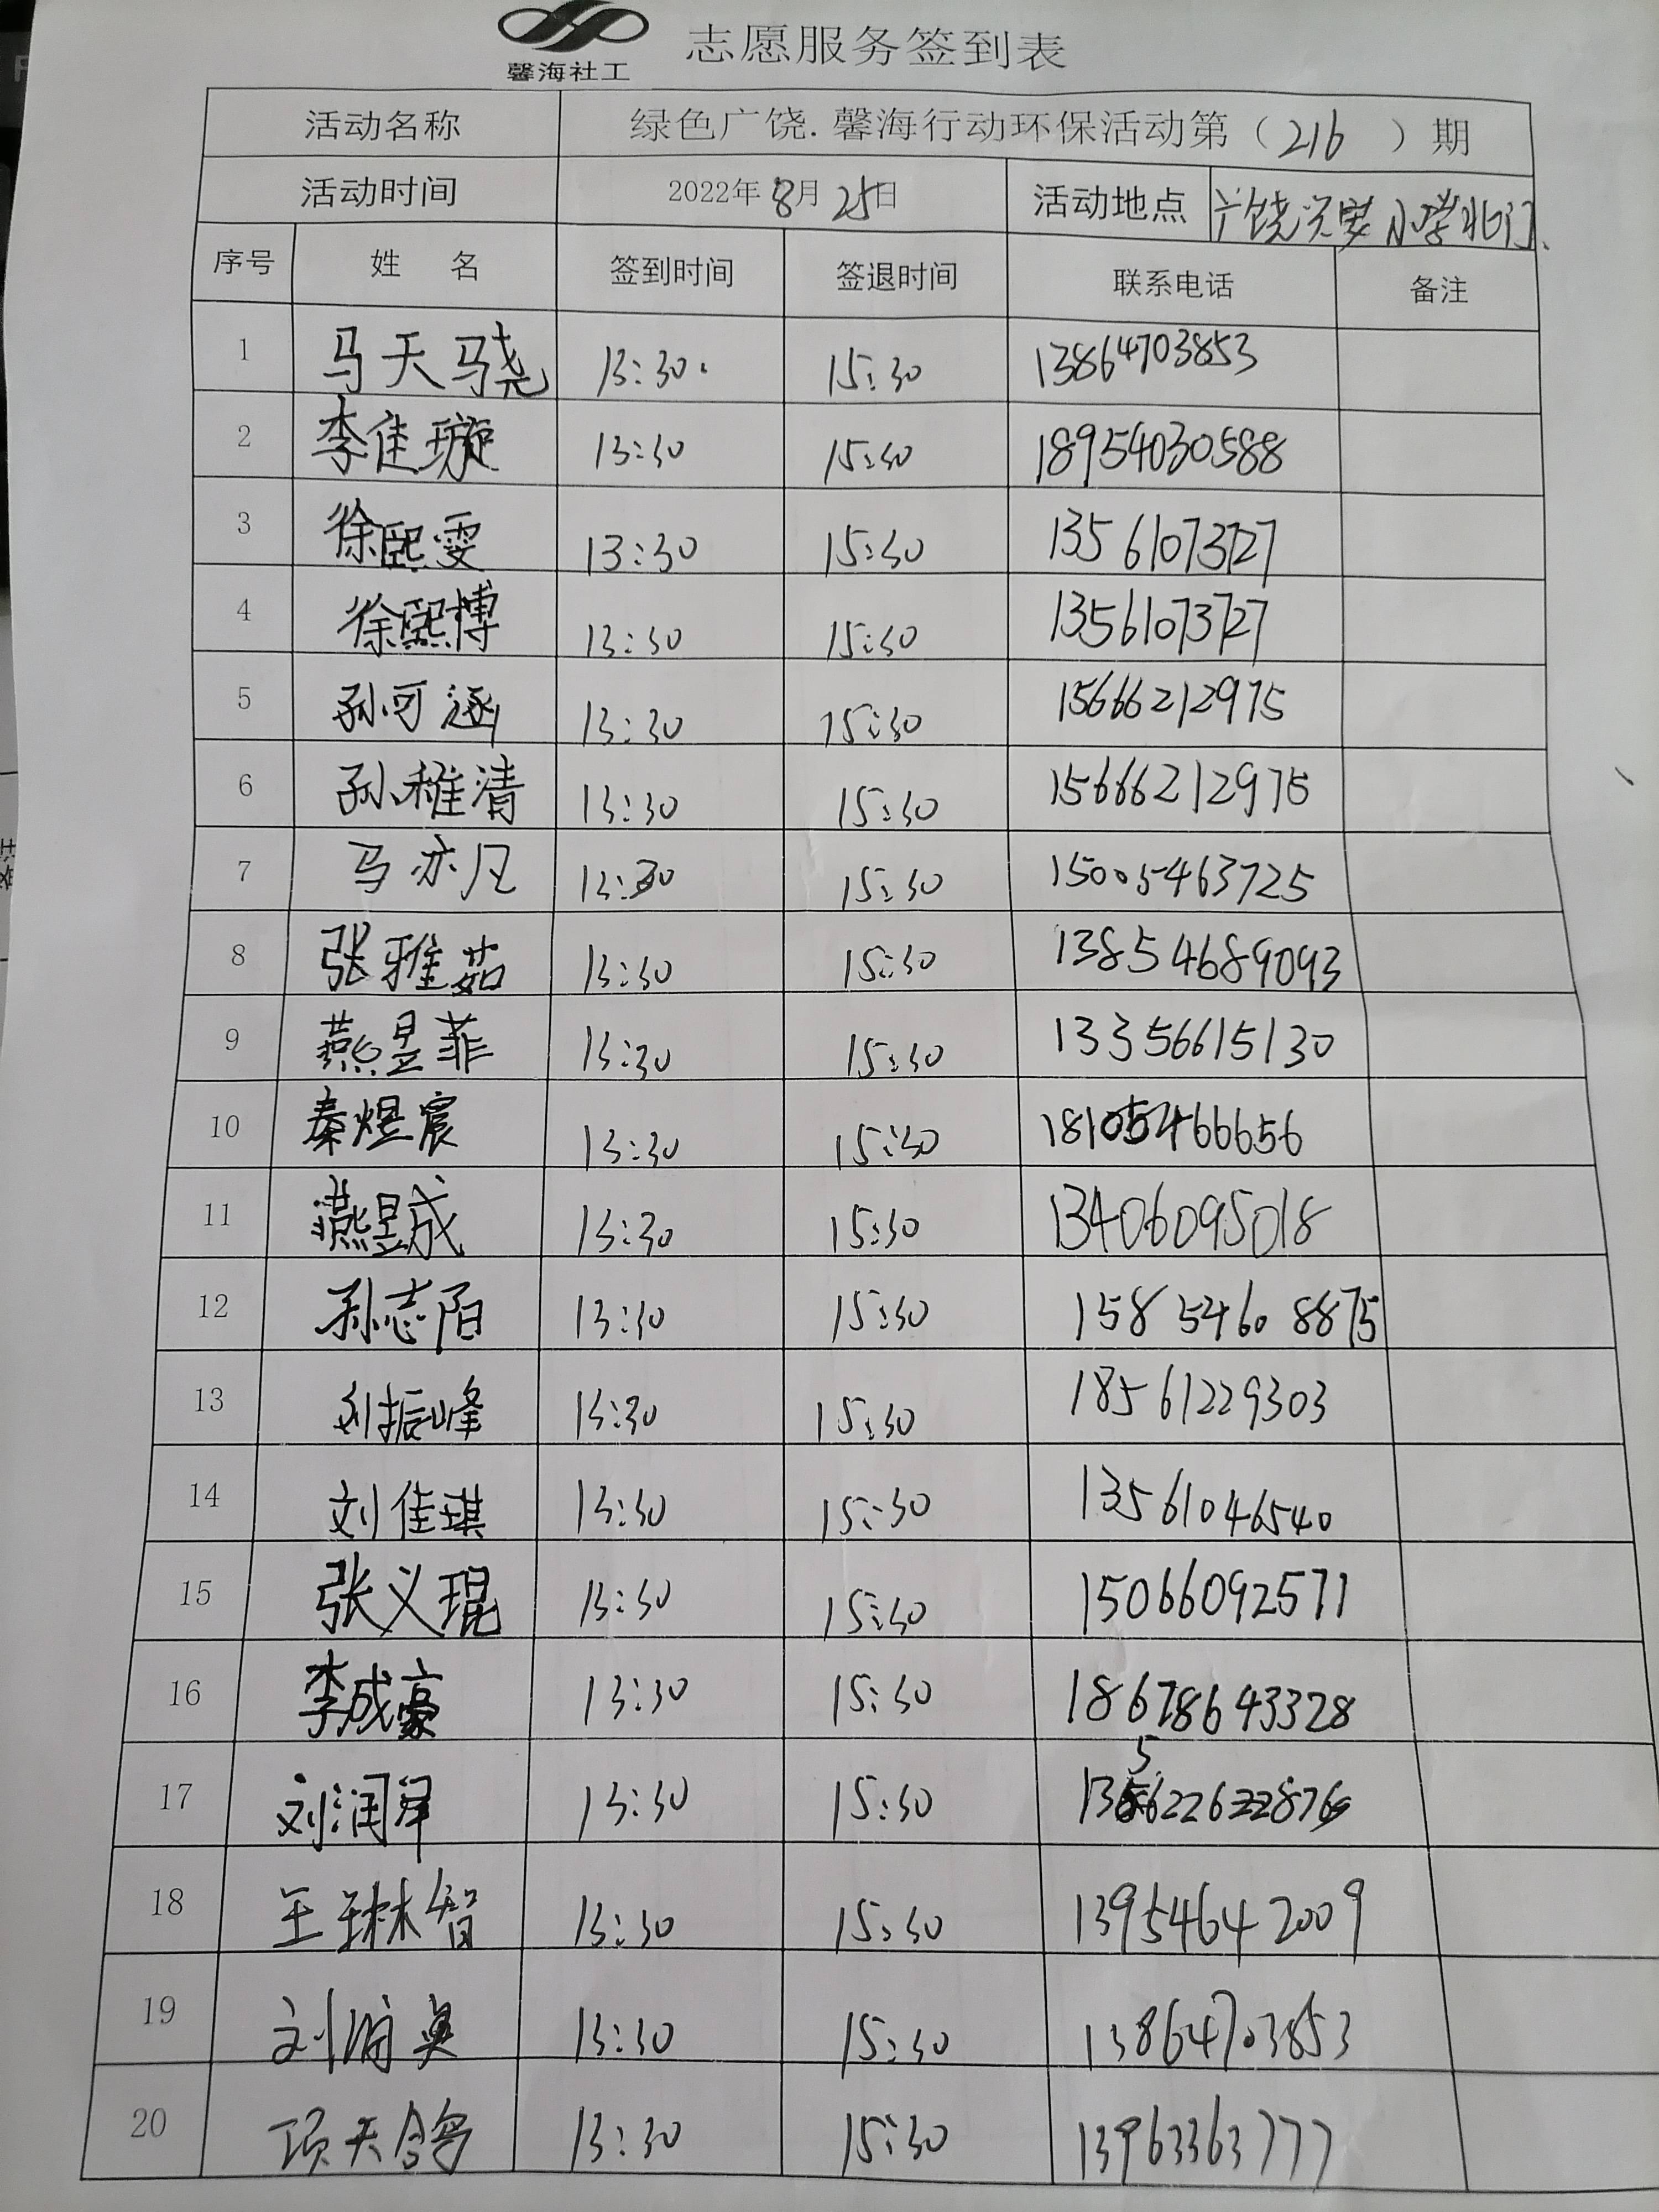 馨海社工
志愿服务签到表
活动名称 绿色广饶.馨海行动环保活动第（216）期
活动时间 2022年8月25日 活动地点 广饶兴安小学北门
序号 姓名 签到时间 签退时间 联系电话 备注
1 马天骁 13:30. 15:30 13864703853
2 李佳璇 13:30 15:30 18954030588
3 徐熙雯 13:30 15:30 13561073727
4 徐熙博 13:30 15:30 13561073727
5 孙可涵 13:30 15:30 15666212975
6 孙稚清 13:30 15:30 15666212975
7 马亦凡 13:30 15:30 15005463725
8 张雅茹 13:30 15:30 13854689093
9 燕昱菲 13:30 15:30 13356615130
10 秦煜宸 13:30 15:30 18105466656
11 燕昱成 13:30 15:30 13406095018
12 孙志阳 13:30 15:30 15854608875
13 刘振峰 13:30 15:30 18561229303
14 刘佳琪 13:30 15:30 13561046540
15 张义琨 13:30 15:30 15066092571
16 李成豪 13:30 15:30 18678643328
17 刘润泽 13:30 15:30
18 王琳智 13:30 15:30 13954642009
19 刘 13:30 15:30 13864703853
20 项天鸽 13:30 15:30 13963363777